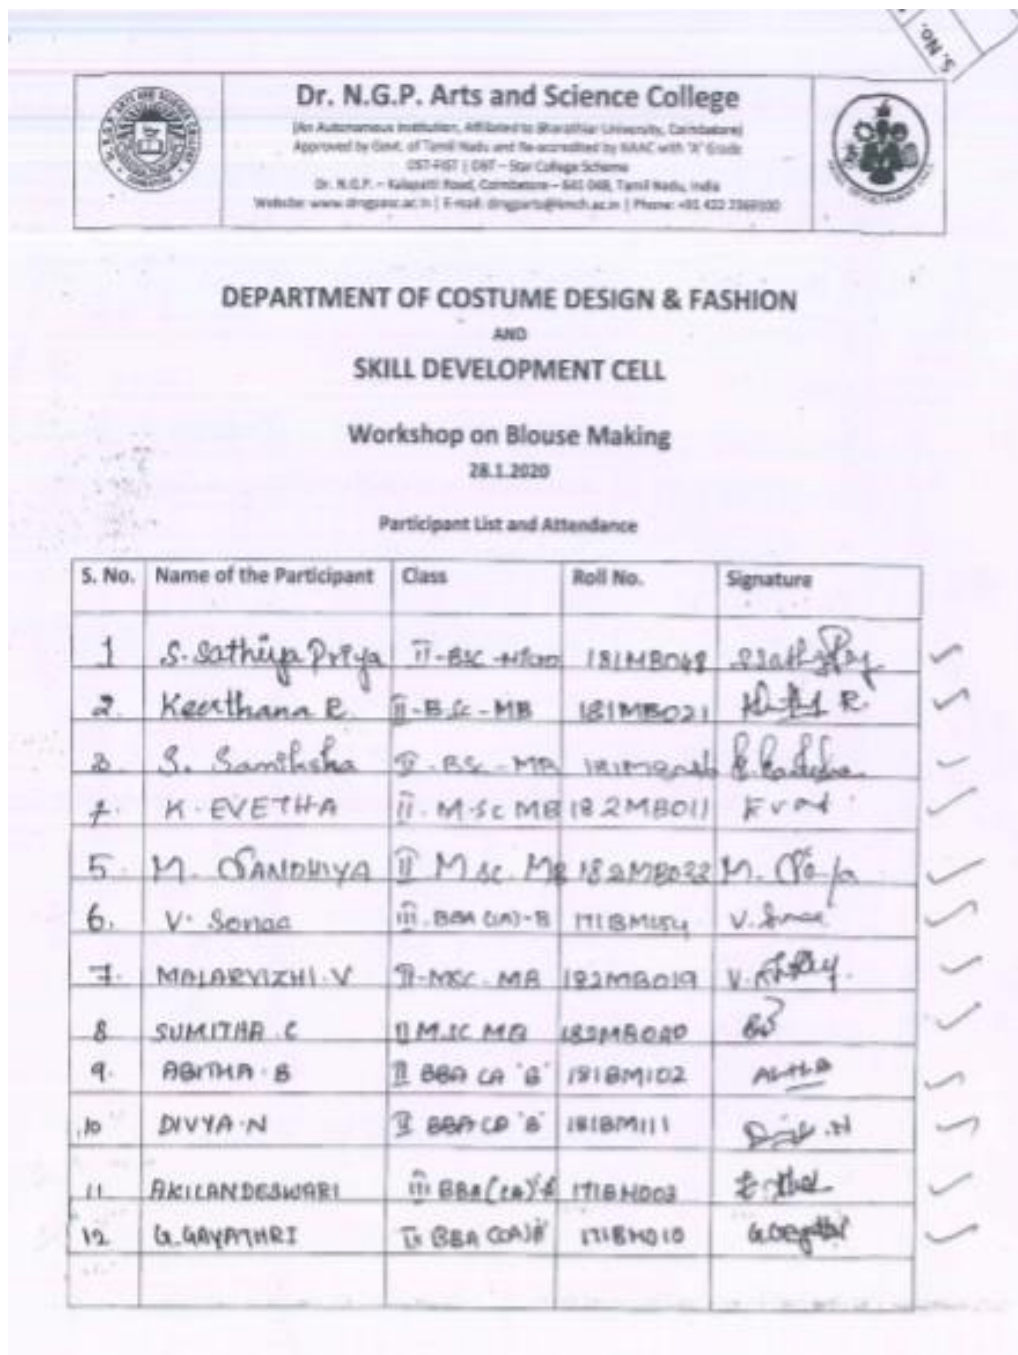 S. No.
Dr. N.G.P. Arts and Science College
(An Autonomous Institution, Affiliated to Bharathiar University, Coimbatore)
Approved by Govt. of Tamil Nadu and Re-accredited by NAAC with 'A' Grade
DST-FIST | DBT – Star College Scheme
Dr. N.G.P. – Kalapatti Road, Coimbatore – 641 048, Tamil Nadu, India
Website: www.drngpasc.ac.in | E-mail: drngparts@kmch.ac.in | Phone: +91 422 2369100
DEPARTMENT OF COSTUME DESIGN & FASHION
AND
SKILL DEVELOPMENT CELL
Workshop on Blouse Making
28.1.2020
Participant List and Attendance
S. No. Name of the Participant Class Roll No. Signature
1 S. Sathiya Priya II - BSC 181MB048
2. Keerthana R. II - B.Sc - MB 181MB021
3. S. Samiksha II - BSc - MB
4. K. EVETHA II. M.Sc MB 182MB011
5. M. SANDHIYA II M.Sc. MB 182MB032
6. V. Sonaa III. BBA (CA)-B 171BM154 V. Sonaa
7. MALARVIZHI. V II-MSC. MB 182MB019
8 SUMITHA. C II M.SC MB
9. ABITHA. B II BBA CA 'B' 181BM102
10 DIVYA. N II BBA CA 'B' 181BM111
11 AKILANDESWARI III BBA (CA) 171BM003
12 G. GAYATHRI BBA (CA) 171BM010